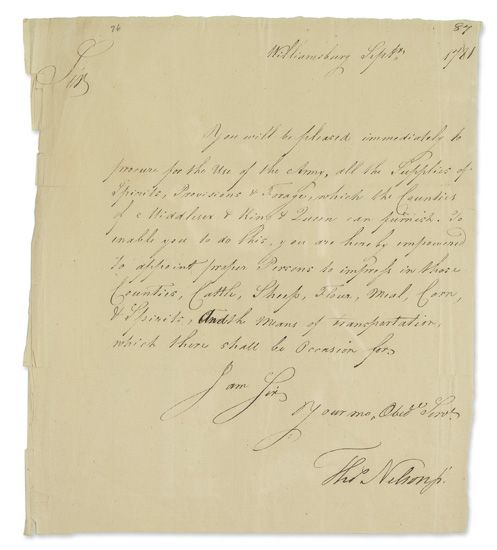 76
87
Williamsburg Septr. 1781
Sir
You will be pleased immediately to
procure for the Use of the Army, all the Supplies of
Spirits, Provisions & Forage, which the Counties
of Middlesex & King & Queen can furnish. To
enable you to do this, you are hereby empowered
to appoint proper Persons to impress in those
Counties, Cattle, Sheep, Flour, Meal, Corn,
& Spirits, And th Means of transportation,
which there shall be Occasion for
I am Sir
Your mo. Obedt. Servt.
Thos. Nelson jr.